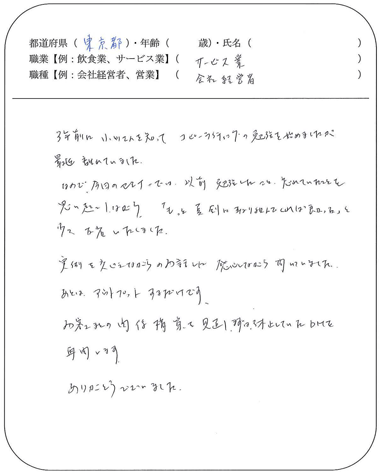 都道府県（東京都）・年齢（　　歳）・氏名（　　　　）
職業【例：飲食業、サービス業】（サービス業　　　）
職種【例：会社経営者、営業】（会社経営者　　　）
3年前に小川さんを知ってコピーライティングの勉強を始めましたが
最近離れていました。
なので、今回のセミナーでは、以前勉強したこと、忘れていたことを
思い出しながら、「もっと真剣に取り組んでいれば良かった」と
反省いたしました。
実例を交えながらのお話しに感心しながら伺いました。
あとは、アウトプットするだけです。
お客さまとの関係構築を見直し、
DMを
再開します。
ありがとうございました。